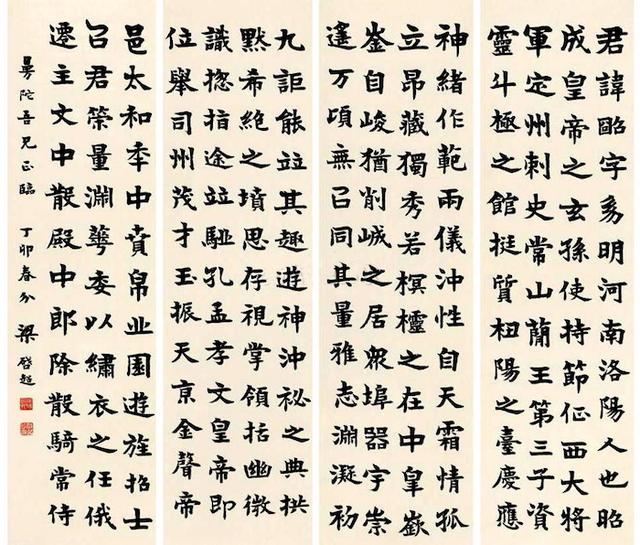 君諱昭字幼明河南洛陽人也昭
成皇帝之玄孫使持節征西大將
軍定州刺史常山蕳王第三子資
靈斗極之館挺質杻陽之臺慶應
神緒作範兩儀沖性自天霜情孤
立昂藏獨秀若榠櫨之在中皇嶽
崟自峻猶削峸之居眾埠器宇崇
邃万頃無㠯同其量雅志淵凝初
九詎能竝其趣遊神沖秘之典拱
默希絶之墳思存視掌領括幽微
識揔指途竝驅孔孟孝文皇帝即
位舉司州茂才玉振天京金聲帝
邑太和年中賁帛丠園遊旌招士
㠯君榮量淵蕚委以繡衣之任俄
遷主文中散殿中郎除散騎常侍
曼陀吾兄正臨 丁卯春分 梁啓超